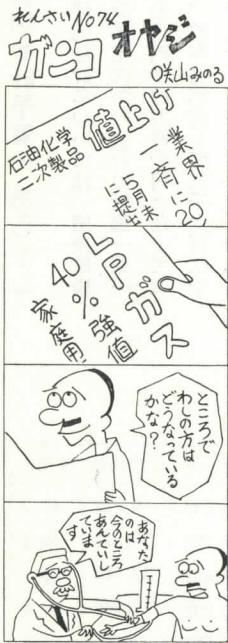 れんさいNO74
ガンコオヤジ
咲山みのる
値上げ
石油化学
二次製品
業界
一斉に20
5月末
に提出
LPガス
40%強値
家庭用
ところで
わしの方は
どうなっている
かな?
あなた
のは
今のところ
あんていし
ていま
す